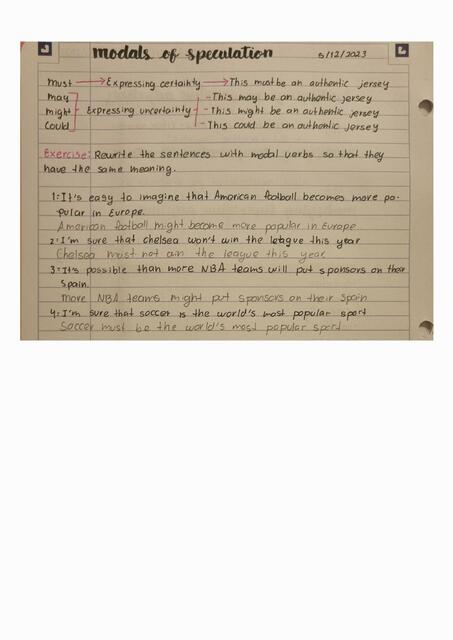 modals of speculation 5/12/2023
Must → Expressing certainty → This must be an authentic jersey
May - This may be an authentic jersey
might Expressing uncertainty - This might be an authentic jersey
Could - This could be an authentic jersey
Exercise: Rewrite the sentences with modal verbs so that they
have the same meaning.
1: It's easy to imagine that American football becomes more po-
pular in Europe.
American football might become more popular in Europe
2: I'm sure that chelsea won't win the league this year
Chelsea must not win the league this year
3: It's possible than more NBA teams will put sponsors on their
Spain.
More NBA teams might put sponsors on their Spain
4: I'm sure that soccer is the world's most popular sport
Soccer must be the world's most popular sport